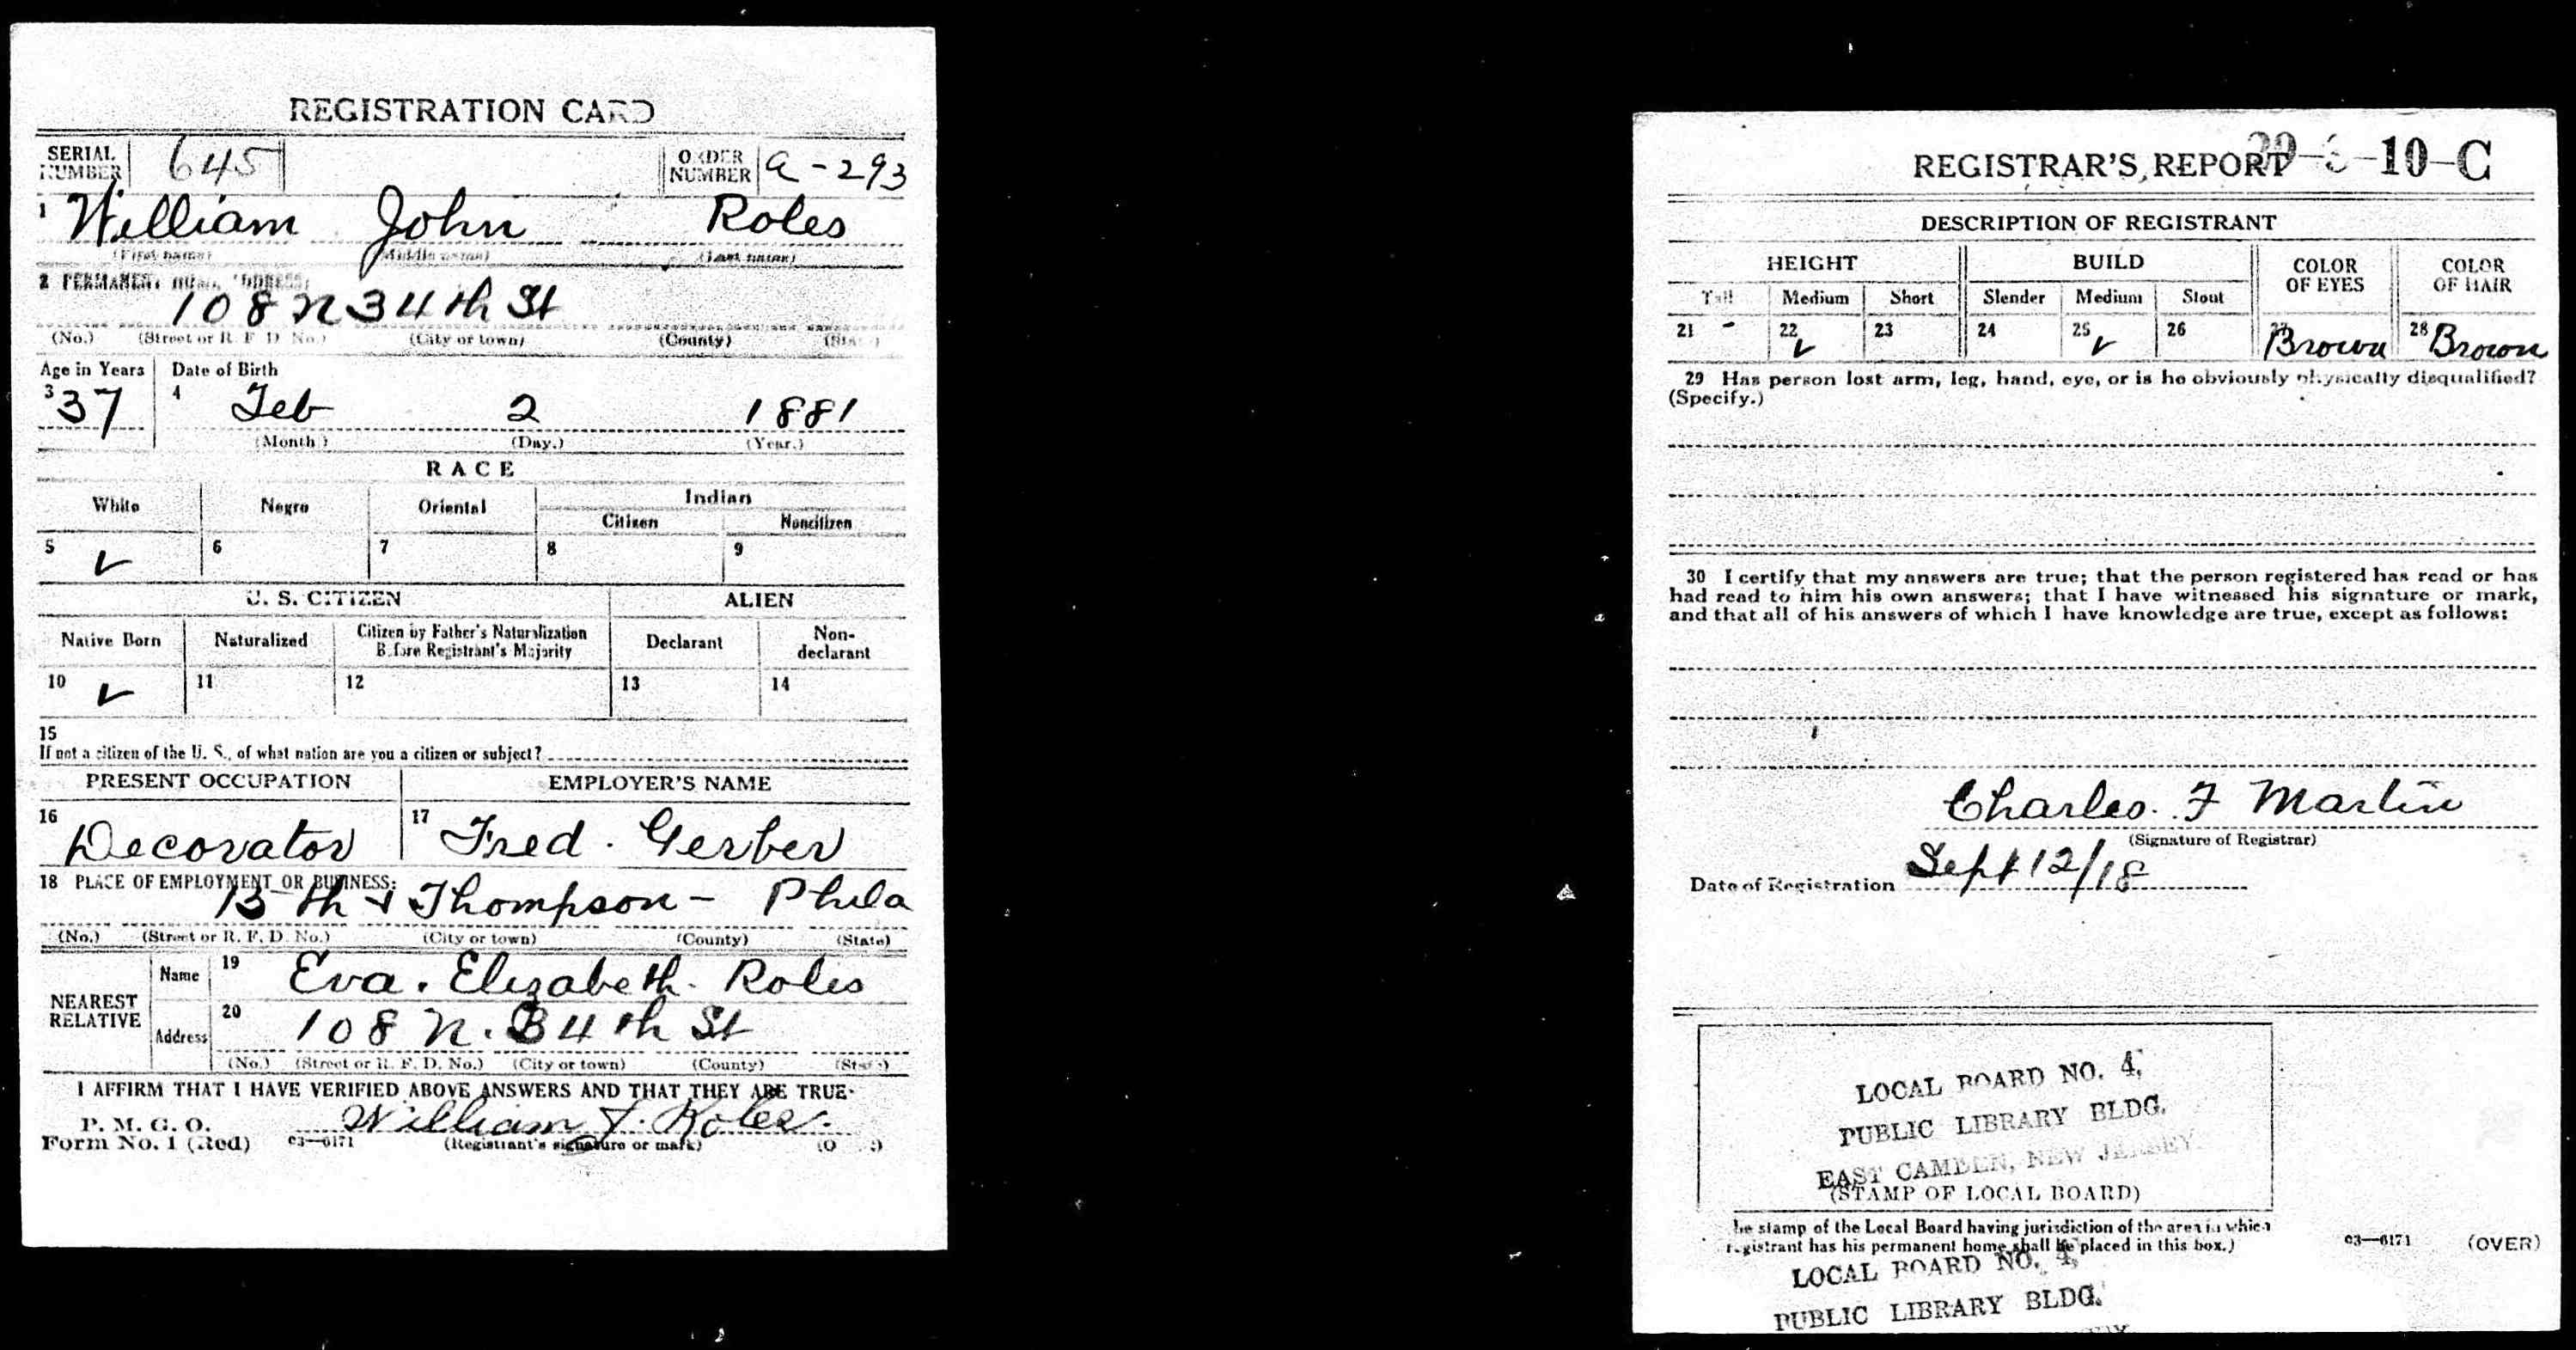 REGISTRATION CARD
SERIAL NUMBER 645 ORDER NUMBER a-293
1 William John Roles
(First name) (Middle name) (Last name)
2 PERMANENT HOME ADDRESS:
108 N 34th St
(No.) (Street or R. F. D. No.) (City or town) (County) (State)
Age in Years Date of Birth
3 37 4 Feb 2 1881
(Month.) (Day.) (Year.)
RACE
White Negro Oriental Indian
Citizen Noncitizen
5 ✓ 6 7 8 9
U. S. CITIZEN ALIEN
Native Born Naturalized Citizen by Father's Naturalization Before Registrant's Majority Declarant Non-declarant
10 ✓ 11 12 13 14
15
If not a citizen of the U. S., of what nation are you a citizen or subject?
PRESENT OCCUPATION EMPLOYER'S NAME
16 Decorator 17 Fred. Gerber
18 PLACE OF EMPLOYMENT OR BUSINESS:
13th & Thompson - Phila
(No.) (Street or R. F. D. No.) (City or town) (County) (State)
NEAREST RELATIVE
Name 19 Eva. Elizabeth. Roles
Address 20 108 N. 34th St
(No.) (Street or R. F. D. No.) (City or town) (County) (State)
I AFFIRM THAT I HAVE VERIFIED ABOVE ANSWERS AND THAT THEY ARE TRUE
P. M. G. O.
Form No. 1 (Red) 03—6171 William J. Roles.
(Registrant's signature or mark)
REGISTRAR'S REPORT 10-C
DESCRIPTION OF REGISTRANT
HEIGHT BUILD COLOR OF EYES COLOR OF HAIR
Tall Medium Short Slender Medium Stout
21 - 22 ✓ 23 24 25 ✓ 26 27 Brown 28 Brown
29 Has person lost arm, leg, hand, eye, or is he obviously physically disqualified?
(Specify.)
30 I certify that my answers are true; that the person registered has read or has
had read to him his own answers; that I have witnessed his signature or mark,
and that all of his answers of which I have knowledge are true, except as follows:
Charles. F Martin
(Signature of Registrar)
Date of Registration Sept 12/18
LOCAL BOARD NO. 4,
PUBLIC LIBRARY BLDG.
EAST CAMDEN, NEW JERSEY.
(STAMP OF LOCAL BOARD)
he stamp of the Local Board having jurisdiction of the area in which
registrant has his permanent home shall be placed in this box.)
03—6171 (OVER)
LOCAL BOARD NO. 4,
PUBLIC LIBRARY BLDG.